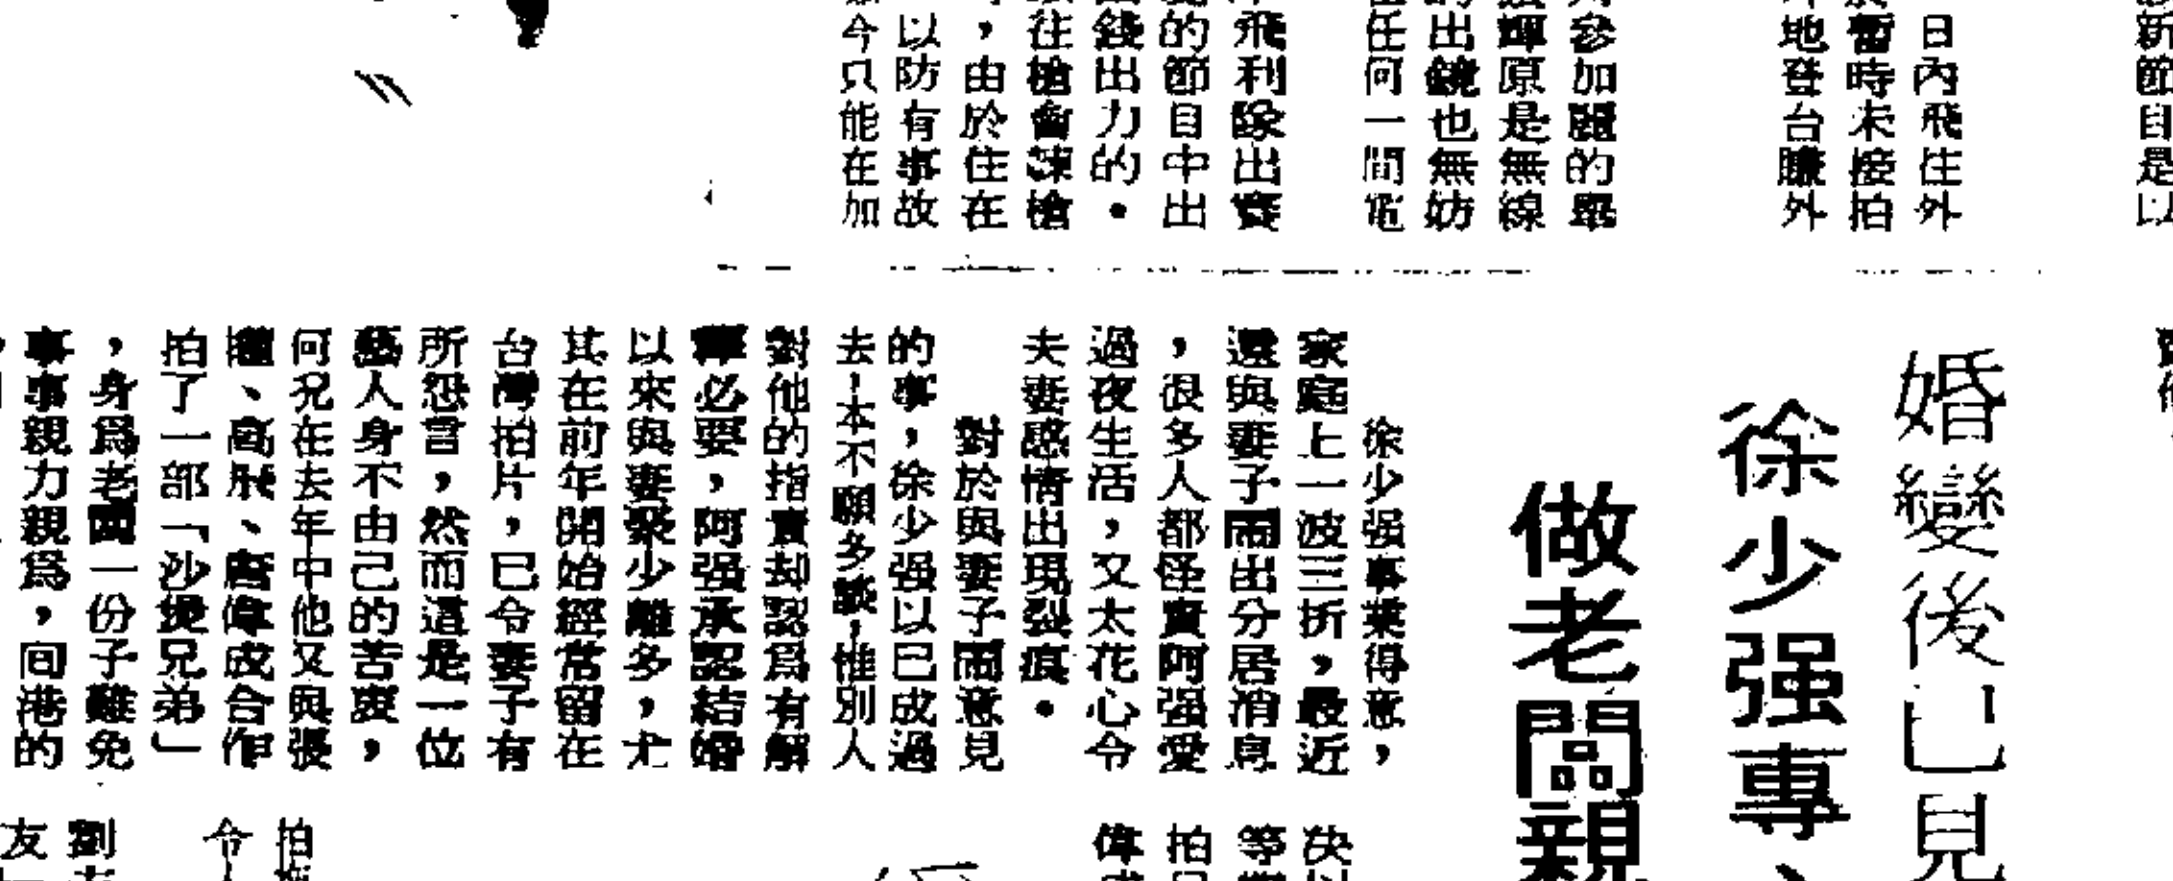 日內飛往外
暫時未接拍
地登台賺外
參加關的舉
輝原是無線
出鏡也無妨
任何一間電
飛利隊出賽
的節目中出
錢出力的。
往槍會練槍
，由於住在
以防有事故
今只能在加
婚變後已見
徐少强專
做老闆親
徐少强事業得意，
家庭上一波三折，最近
還與妻子鬧出分居消息
，很多人都怪責阿强愛
過夜生活，又太花心令
夫妻感情出現裂痕。
對於與妻子鬧意見
的事，徐少强以已成過
去，本不願多談，惟別人
對他的指責却認爲有解
釋必要，阿强承認結婚
以來與妻聚少離多，尤
其在前年開始經常留在
台灣拍片，已令妻子有
所怨言，然而這是一位
藝人身不由己的苦衷，
何况在去年中他又與張
瓏、高飛、唐偉成合作
拍了一部「沙煲兄弟」
，身爲老闆一份子難免
事事親力親爲，回港的
决
等
拍
偉
拍
令
劉
友